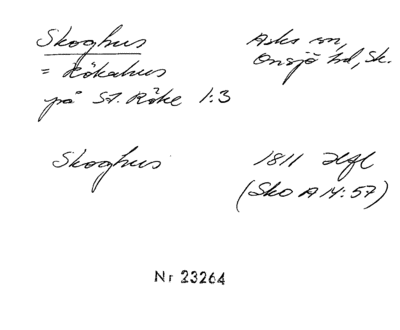 Skoghus
Asks sn,
Onsjö hd, Sk.
= Rökahus
på St. Röke 1:3
Skoghus
1811 Hfl
(Sko A 14:57)
Nr 23264